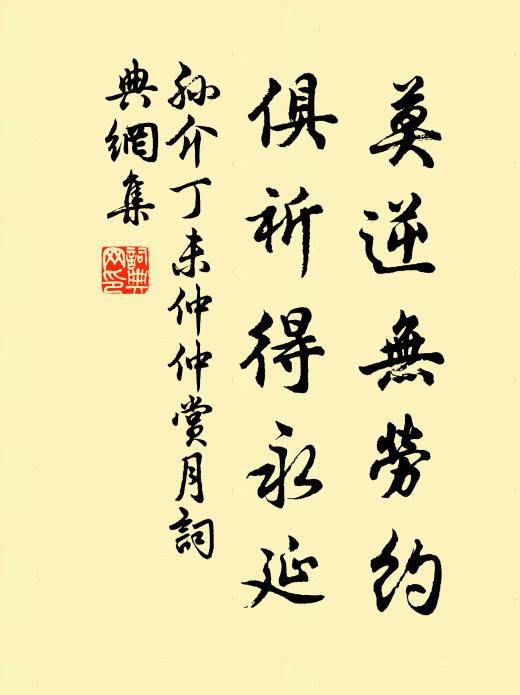 莫逆無勞約
俱祈得永延
孫介丁未仲仲賞月詞
典網集
詞典網印